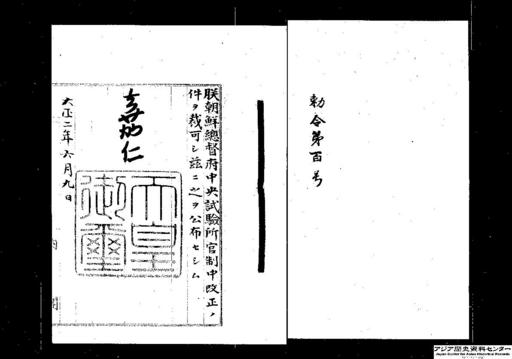 勅令第百号
朕朝鮮總督府中央試驗所官制中改正ノ
件ヲ裁可シ茲ニ之ヲ公布セシム
嘉仁
天皇
御璽
大正二年六月九日
アジア歴史資料センター
Japan Center for Asian Historical Records